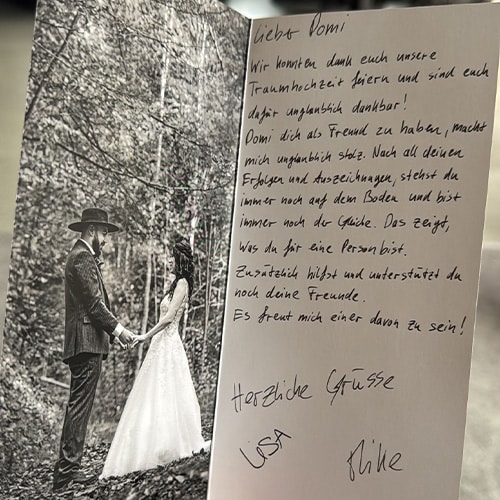 Lieber Domi
Wir konnten dank euch unsere
Traumhochzeit feiern und sind euch
dafür unglaublich dankbar!
Domi dich als Freund zu haben, macht
mich unglaublich stolz. Nach all deinen
Erfolgen und Auszeichnungen, stehst du
immer noch auf dem Boden und bist
immer noch der Gleiche. Das zeigt,
was du für eine Person bist.
Zusätzlich hilfst und unterstützt du
noch deine Freunde.
Es freut mich einer davon zu sein!
Herzliche Grüsse
LiSA
Mike